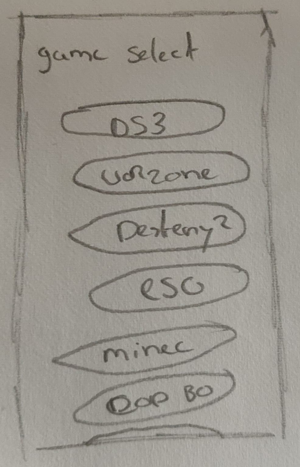 game select
DS3
warzone
Desteny 2
eso
minec
cop BO